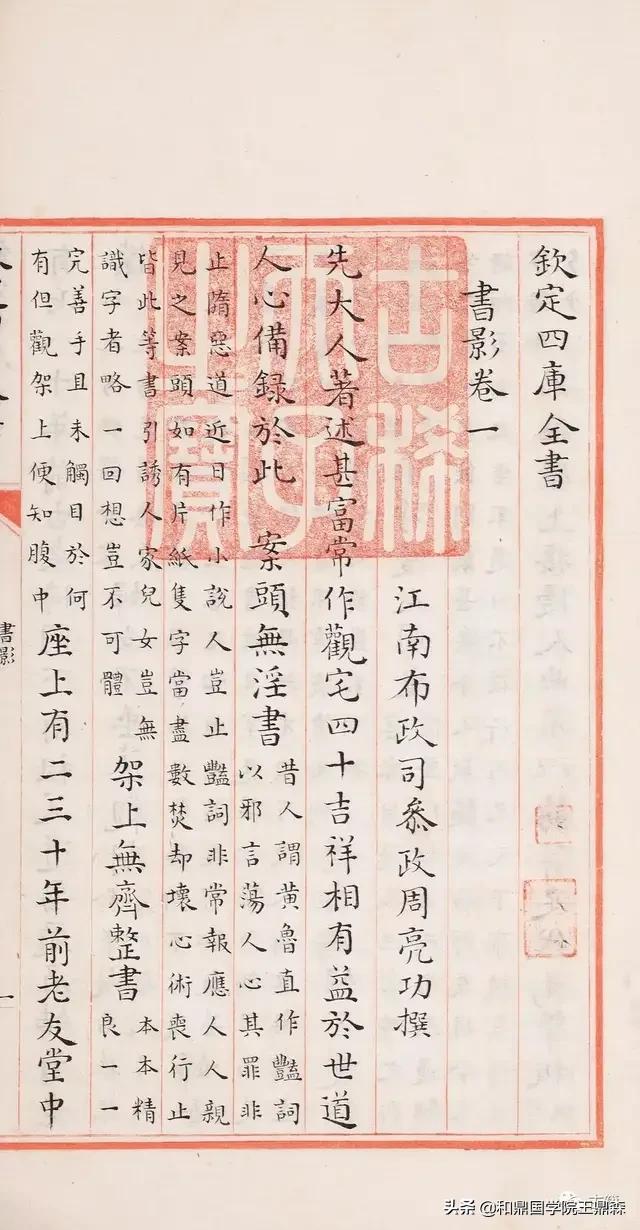 欽定四庫全書
書影卷一
江南布政司叅政周亮功撰
先大人著述甚富常作觀宅四十吉祥相有益於世道
人心備錄於此 案頭無淫書 昔人謂黃魯直作豔詞
以邪言蕩人心其罪非
止隋惡道近日作小說人豈止豔詞非常報應人人親
見之案頭如有片紙隻字當盡數焚却壞心術喪行止
皆此等書引誘人家兒女豈無
識字者略一回想豈不可體
架上無齊整書
本本精
良一一
完善手且未觸目於何
有但觀架上便知腹中
座上有二三十年前老友堂中
書影
一
古稀
天子
之寶
头条 @和鼎国学院王鼎森